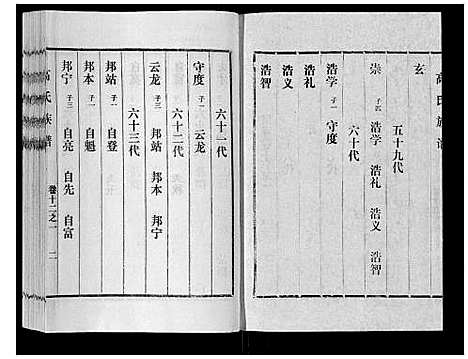 高氏族谱
玄
五十九代
崇 子四 浩学 浩礼 浩义 浩智
六十代
浩学 子一 守度
浩礼
浩义
浩智
六十一代
守度 子一 云龙
六十二代
云龙 子三 邦站 邦本 邦宁
六十三代
邦站 子一 自登
邦本 子一 自魁
邦宁 子三 自亮 自先 自富
高氏族谱 卷十二之一 二